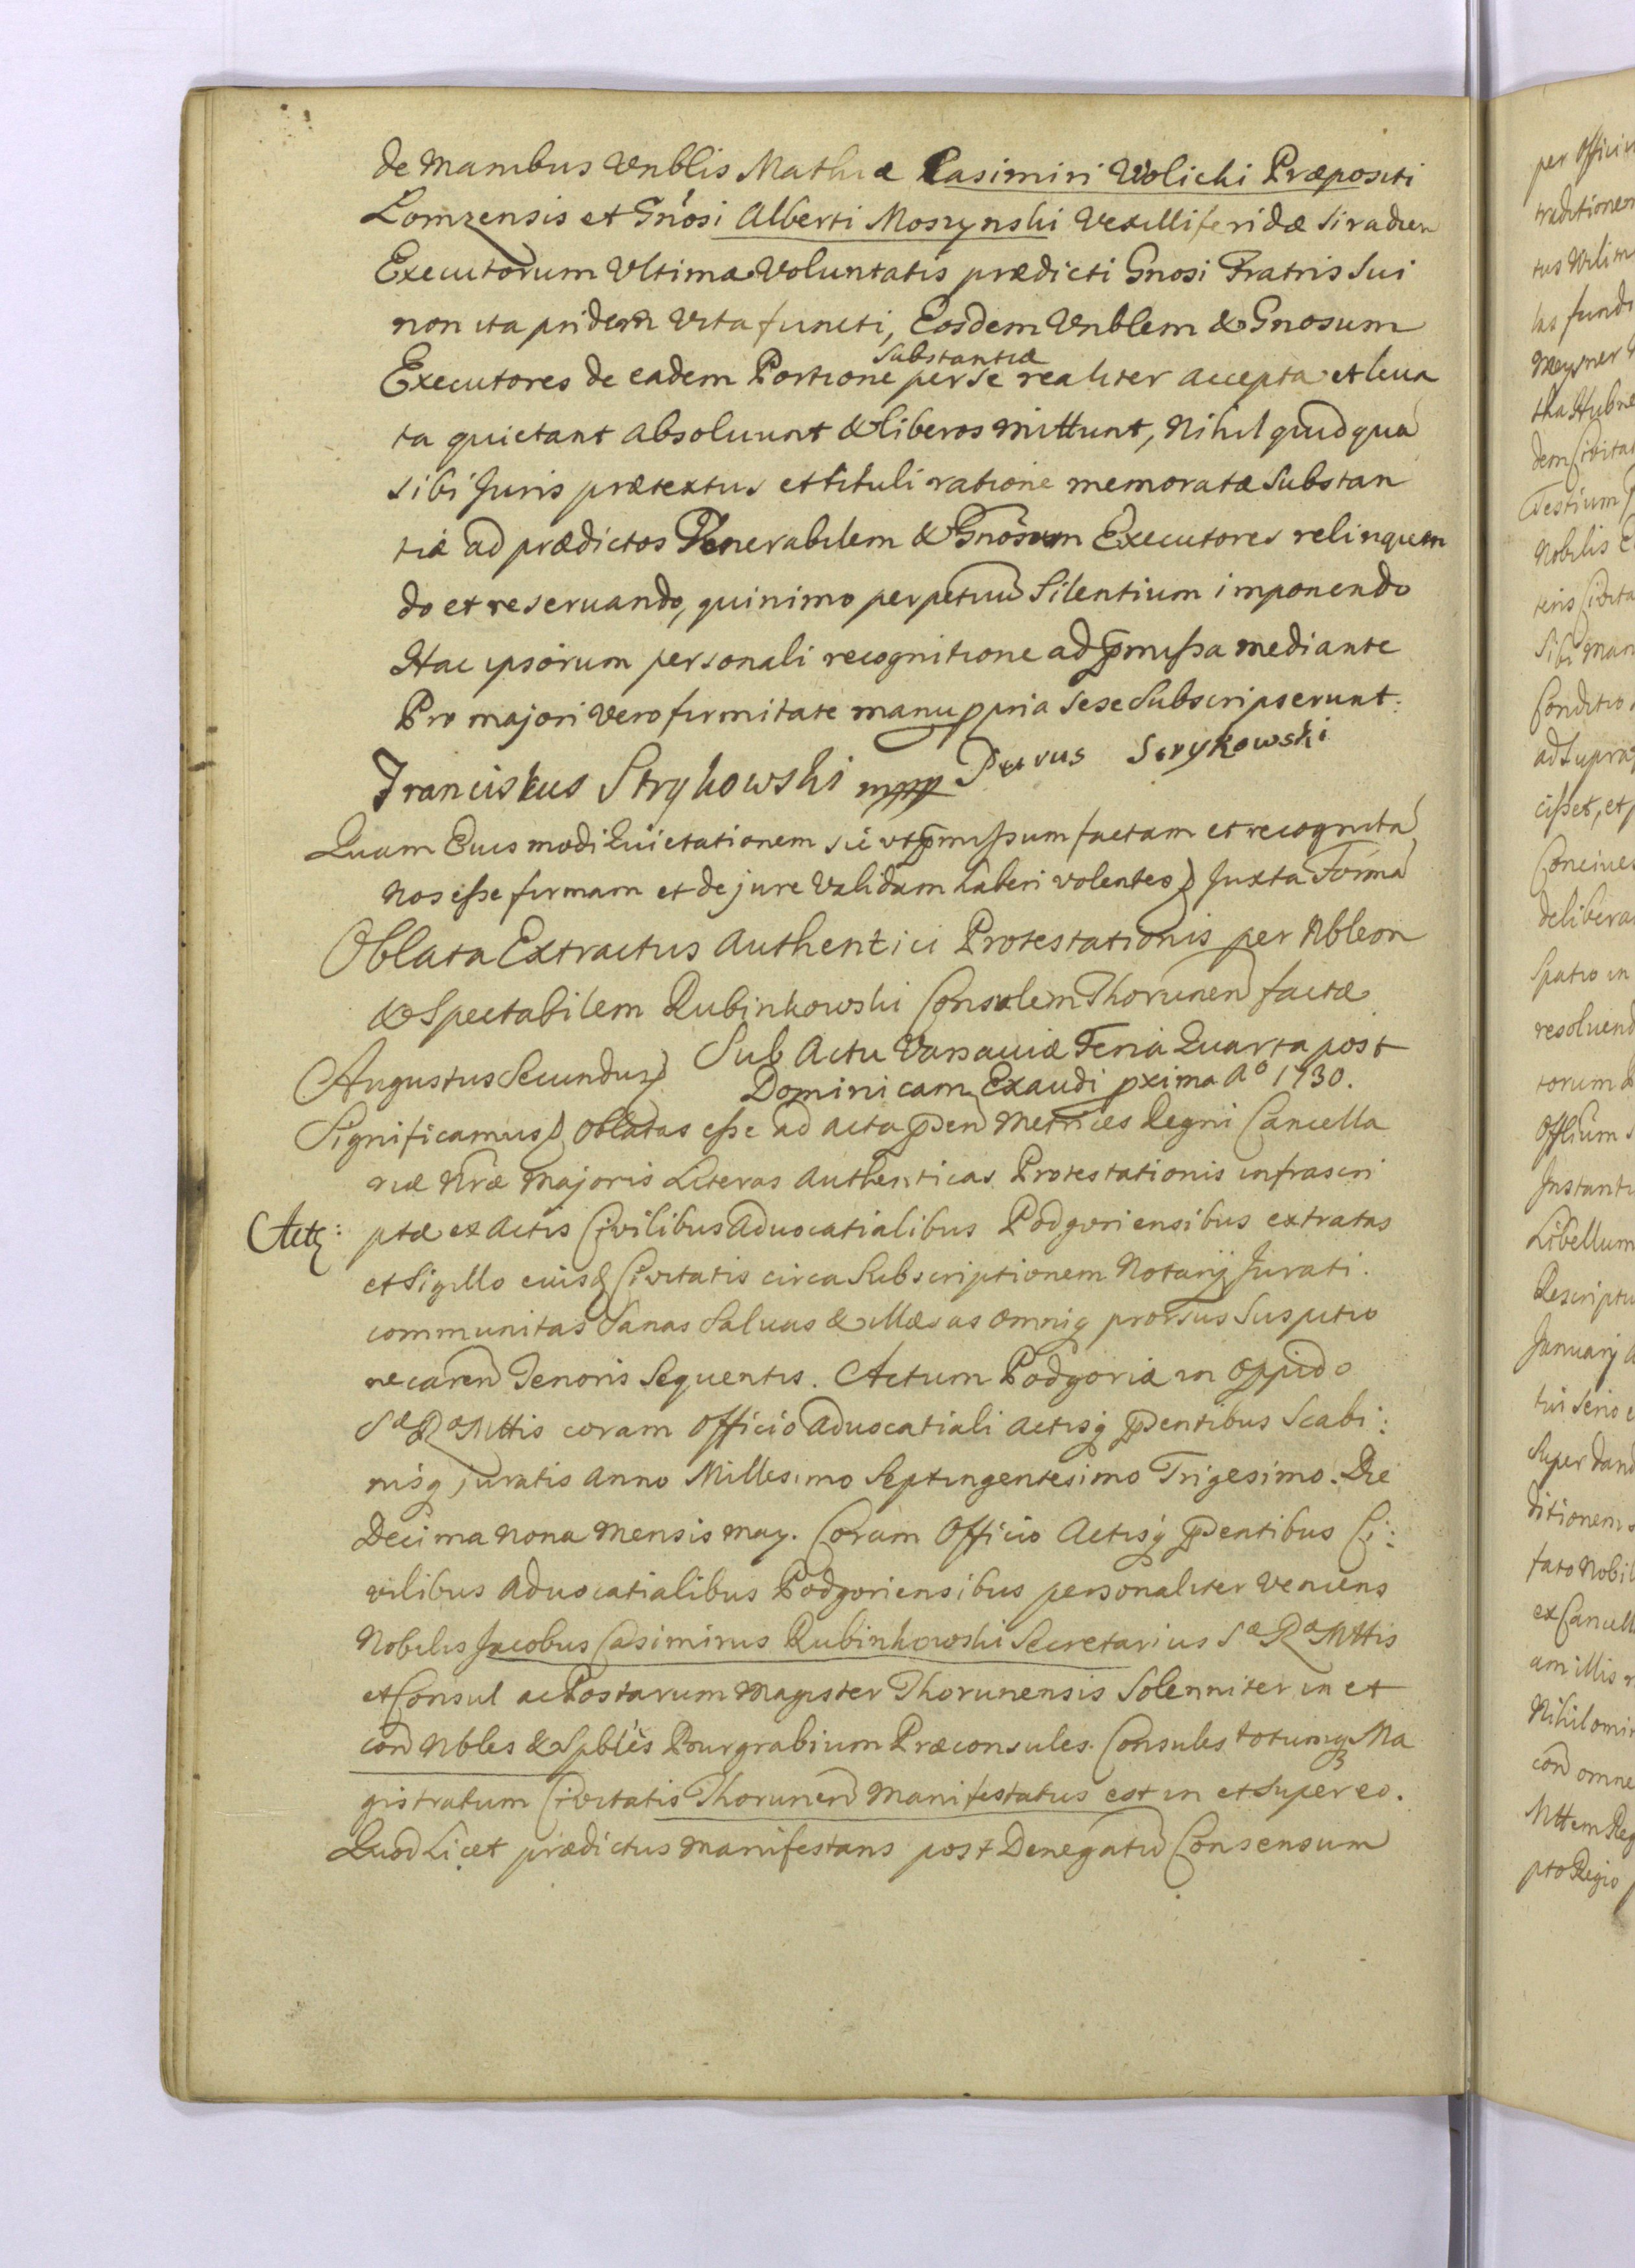 de Manibus Vnblis Mathiæ Casimiri Wolicki Præpositi
Lomzensis et Gnosi Alberti Moszynski Vexilliferidæ Siradien
Executorum Vltimæ Voluntatis prædicti Gnosi Fratris Sui
non ita pridem Vita functi, Eosdem Vnblem & Gnosum
Substantiæ
Executores de eadem Portione per se realiter accepta et leua
ta quietant absoluunt & liberos mittunt, Nihil quidquã
sibi Juris prætextus et tituli ratione memoratæ Substan
tiæ ad prædictos Venerabilem & Gnosum Executores relinquen
do et reseruando, quinimo perpetuũ Silentium imponendo
Hac ipsorum personali recognitione ad pmissa mediante
Pro majori vero firmitate manu ppria sese Subscripserunt.
Franciskus Strykowski mpp Petrus Strykowski
Quam Eius modi Quietationem sic vt pmissum factam et recognitã
nos esse firmam et de jure Validam haberi volentes Juxta Formã
Oblata Extractus Authentici Protestationis per Nblem
& Spectabilem Rubinkowski Consulem Thorunen factæ
Sub Actu Varsaviæ Feria Quarta post
Augustus Secundus
Dominicam Exaudi pxima Aº 1730.
Significamus Oblatas esse ad acta psen Metrices Regni Cancella
riæ Nræ Majoris Literas Authenticas Protestationis infrascri
Act:
ptæ ex Actis Civilibus Aduocatialibus Podgoriensibus extratas
et Sigillo eiusd Civitatis circa Subscriptionem Notarij Jurati
communitas Sanas Saluas & illæsas omniq prorsus Suspitio
ne caren Tenoris Sequentis. Actum Podgoriæ in Oppido
Sæ Ræ Mttis coram Officio Aduocatiali Actisq psentibus Scabi:
nisq juratis Anno Millesimo Septingentesimo Trigesimo. Die
Decima Nona Mensis May. Coram Officio Actisq psentibus Ci:
vilibus Aduocatialibus Podgoriensibus personaliter Veniens
Nobilis Jacobus Casimirus Rubinkowski Secretarius Sæ Ræ Mttis
et Consul ac Postarum Magister Thorunensis Solenniter in et
con Nbles & Spbles Burgrabium Præconsules Consules totumq Ma
gistratum Civitatis Thorunen Manifestatus est in et Super eo.
Quod Licet prædictus Manifestans post Denegatũ Consensum